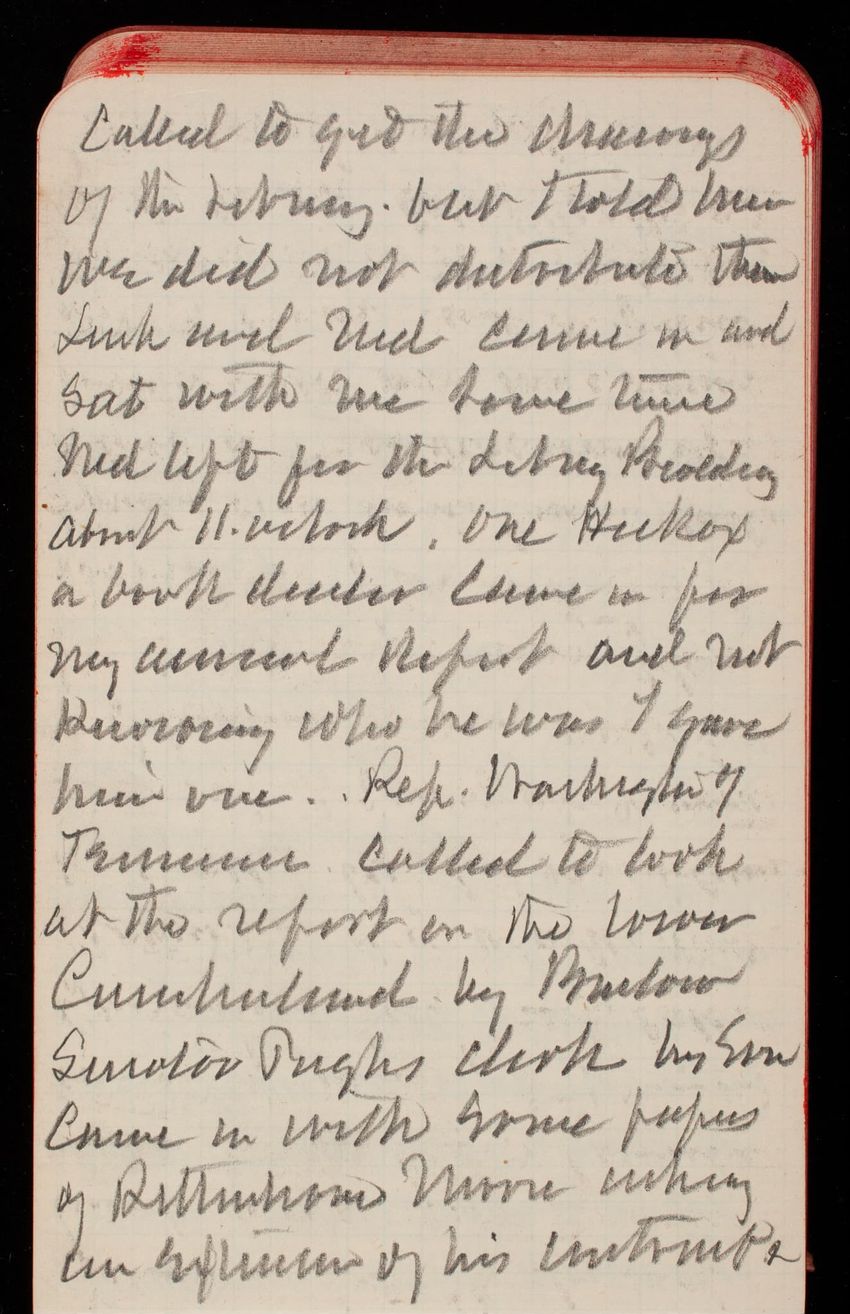 Called to get the drawings
of the Library. but I told him
we did not distribute them
Luck and Ned came in and
Sat with me some time
Ned left for the Library Building
about 11. oclock. One Hickox
a book dealer Came in for
my annual Report and not
Knowing who he was I gave
him one.. Rep. Washington of
Tennessee called to look
at the report on the lower
Cumberland by Barlow
Senator Pughs clerk
Came in with some papers
of Rittenhouse Moore asking
an extension of his contract